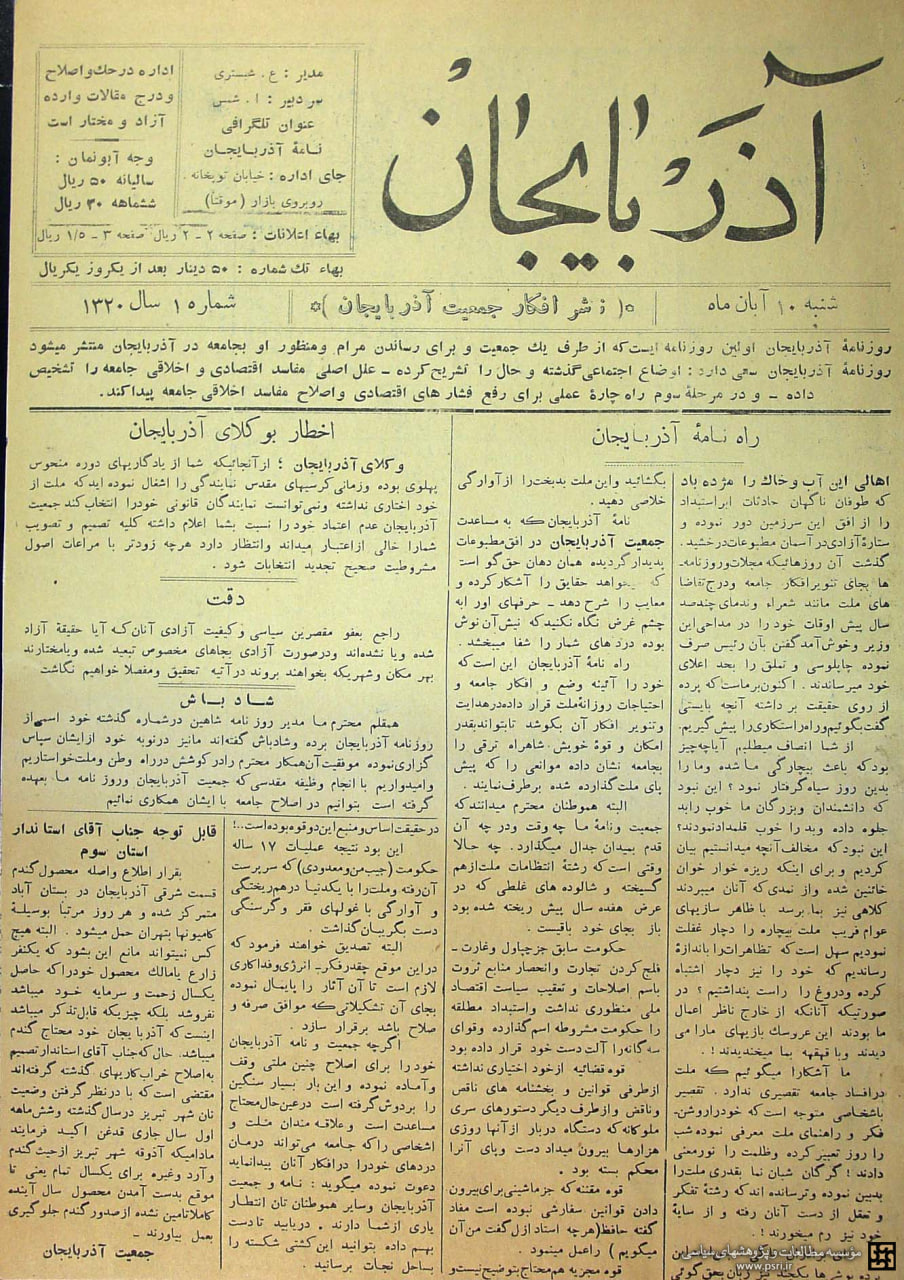 آذربایجان
مدیر : ع . شبستری
سردبیر : ا . شمس
عنوان تلگرافی
نامهٔ آذربایجان
جای اداره : خیابان توپخانه .
روبروی بازار (موقتاً)
اداره در حك و اصلاح
و درج مقالات وارده
آزاد و مختار است
وجه آبونمان :
سالیانه ۵۰ ریال
ششماهه ۳۰ ریال
بهاء اعلانات : صفحه ۲ ـ ۲ ریال صفحه ۳ ـ ۱/۵ ریال
بهاء تك شماره : ۵۰ دینار بعد از یکروز یکریال
شنبه ۱۰ آبان ماه
( نشر افکار جمعیت آذربایجان )
شماره ۱ سال ۱۳۲۰
روزنامهٔ آذربایجان اولین روزنامه ایست که از طرف یك جمعیت و برای رساندن مرام ومنظور او بجامعه در آذربایجان منتشر میشود
روزنامهٔ آذربایجان سعی دارد : اوضاع اجتماعی گذشته و حال را تشریح کرده ـ علل اصلی مفاسد اقتصادی و اخلاقی جامعه را تشخیص
داده ـ و در مرحلهٔ سوم راه چارهٔ عملی برای رفع فشارهای اقتصادی واصلاح مفاسد اخلاقی جامعه پیدا کند.
راه نامهٔ آذربایجان
اهالی این آب وخاك را مژده باد
که طوفان ناگهان حادثات ابر استبداد
را از افق این سرزمین دور نموده و
ستارهٔ آزادی در آسمان مطبوعات درخشید.
گذشت آن روزهائیکه مجلات وروزنامه‌ـ
ها بجای تنویر افکار جامعه ودرج تقاضا
های ملت مانند شعراء وندمای چند صد
سال پیش اوقات خود را در مداحی این
وزیر وخوش آمد گفتن بآن رئیس صرف
نموده چاپلوسی و تملق را بحد اعلای
خود میرساندند . اکنون بر ماست که پرده
از روی حقیقت بر داشته آنچه بایستی
گفت بگوئیم وراه راستکاری را پیش گیریم.
از شما انصاف میطلبم آیا چه چیز
بود که باعث بیچارگی ما شده وما را
بدین روز سیاه گرفتار نمود ؟ این نبود
که دانشمندان وبزرگان ما خوب را بد
جلوه داده وبد را خوب قلمداد نمودند؟
این نبود که مخالف آنچه میدانستیم بیان
کردیم و برای اینکه ریزه خوار خوان
خائنین شده واز نمدی که آنان میبردند
کلاهی نیز بما برسد با ظاهر سازیهای
عوام فریب ملت بیچاره را دچار غفلت
نمودیم سهل است که تظاهرات را باندازهٔ
رساندیم که خود را نیز دچار اشتباه
کرده ودروغ را راست پنداشتیم ؟ در
صورتیکه آنانکه از خارج ناظر اعمال
ما بودند این عروسك بازیهای مارا می
دیدند وبا قهقهه بما میخندیدند ! .
ما آشکارا میگوئیم که ملت
در افساد جامعه تقصیری ندارد . تقصیر
باشخاصی متوجه است که خودرا روشن‌ـ
فکر و راهنمای ملت معرفی نموده شب
را روز تعبیر کرده وظلمت را نور معنی
دادند ! گرگان شبان نما بقدری ملت را
بدبین نموده وترسانده اند که رشتهٔ تفکر
و تعقل از دست آنان رفته و از سایهٔ
خود نیز رم میخورند ! .
بگشائید واین ملت بدبخت را از آوارگی
خلاصی دهید .
نامهٔ آذربایجان که به مساعدت
جمعیت آذربایجان در افق مطبوعات
پدیدار گردیده همان دهان حق گو است
که میخواهد حقایق را آشکار کرده و
معایب را شرح دهد ـ حرفهای او را به
چشم غرض نگاه نکنید که نیش آن نوش
بوده دردهای شمار را شفا میبخشد .
راه نامهٔ آذربایجان این است که
خود را آئینه وضع و افکار جامعه و
احتیاجات روزانهٔ ملت قرار داده در هدایت
وتنویر افکار آن بکوشد تا بتواند بقدر
امکان و قوهٔ خویش شاهراه ترقی را
بجامعه نشان داده موانعی را که پیش
پای ملت گذارده شده بر طرف نمایند .
البته هموطنان محترم میدانند که
جمعیت ونامهٔ ما چه وقت ودر چه آن
قدم بمیدان جدال میگذارد . چه حالا
وقتی است که رشتهٔ انتظامات ملت از هم
گسیخته و شالوده های غلطی که در
عرض هفده سال پیش ریخته شده بود
باز بجای خود باقیست .
حکومت سابق جز چپاول وغارت ـ
فلج کردن تجارت وانحصار منابع ثروت
باسم اصلاحات و تعقیب سیاست اقتصاد
ملی منظوری نداشت واستبداد مطلقه
را حکومت مشروطه اسم گذارده وقوای
سه گانه را آلت دست خود قرار داده بود
قوه قضائیه از خود اختیاری نداشته
از طرفی قوانین و بخشنامه های ناقص
وناقض واز طرف دیگر دستورهای سری
ملوکانه که دستگاه دربار از آنها روزی
هزارها بیرون میداد دست وپای آنرا
محکم بسته بود .
قوه مقننه که جز ماشینی برای بیرون
دادن قوانین سفارشی نبوده است مفاد
گفته حافظ (هرچه استاد ازل گفت من آن
میگویم ) را عمل مینمود .
قوه مجریه هم محتاج بتوضیح نیست و
اخطار بوکلای آذربایجان
وکلای آذربایجان ؛ از آنجائیکه شما از یادگاریهای دوره منحوس
پهلوی بوده وزمانی کرسیهای مقدس نمایندگی را اشغال نموده اید که ملت از
خود اختاری نداشته ونمی توانست نمایندگان قانونی خودرا انتخاب کند جمعیت
آذربایجان عدم اعتماد خودرا نسبت بشما اعلام داشته کلیه تصمیم و تصویب
شمارا خالی از اعتبار میداند وانتظار دارد هرچه زودتر با مراعات اصول
مشروطیت صحیح تجدید انتخابات شود .
دقت
راجع بعفو مقصرین سیاسی وکیفیت آزادی آنان که آیا حقیقهٔ آزاد
شده ویا نشده‌اند ودر صورت آزادی بجاهای مخصوص تبعید شده ویا مختارند
بهر مکان وشهریکه بخواهند بروند در آتیه تحقیق ومفصلا خواهیم نگاشت
شاد باش
همقلم محترم ما مدیر روزنامه شاهین در شماره گذشته خود اسمی از
روزنامه آذربایجان برده وشادباش گفته‌اند ما نیز در نوبه خود از ایشان سپاس
گزاری نموده موفقیت آن همکار محترم را در کوشش در راه وطن وملت خواستاریم
وامیدواریم با انجام وظیفه مقدسی که جمعیت آذربایجان وروز نامه ما بعهده
گرفته است بتوانیم در اصلاح جامعه با ایشان همکاری نمائیم
در حقیقت اساس و منبع این دو قوه بوده است..!
این بود نتیجه عملیات ۱۷ ساله
حکومت (جیب من ومعدودی) که سر پرست
آن رفته وملت را با یکدنیا درهم ریختگی
و آوارگی با غولهای فقر و گرسنگی
دست بگریبان گذاشت .
البته تصدیق خواهند فرمود که
در این موقع چقدر فکر ـ انرژی وفداکاری
لازم است تا آن آثار را پایمال نموده
بجای آن تشکیلاتی که موافق صرفه و
صلاح باشد برقرار سازد .
اگرچه جمعیت و نامه آذربایجان
خود را برای اصلاح چنین ملتی وقف
وآماده نموده و این بار بسیار سنگین
را بردوش گرفته است در عین حال محتاج
مساعدت است و علاقه مندان ملت و
اشخاصی را که جامعه می تواند درمان
دردهای خودرا در افکار آنان پیدا نماید
دعوت نموده میگوید : نامه و جمعیت
آذربایجان وسایر هموطنان تان انتظار
یاری از شما دارند . دریابید تا دست
بهم داده بتوانید این کشتی شکسته را
بساحل نجات برسانید .
قابل توجه جناب آقای استاندار
استان سوم
بقرار اطلاع واصله محصول گندم
قسمت شرقی آذربایجان در بستان آباد
متمرکز شده و هر روز مرتباً بوسیلهٔ
کامیونها بتهران حمل میشود . البته هیچ
کس نمیتواند مانع این بشود که یکنفر
زارع یا مالك محصول خودرا که حاصل
یکسال زحمت و سرمایه خود میباشد
نفروشد بلکه چیزیکه قابل تذکر میباشد
اینست که آذربایجان خود محتاج گندم
میباشد. حال که جناب آقای استاندار تصمیم
به اصلاح خراب کاریهای گذشته گرفته‌اند
مقتضی است که با در نظر گرفتن وضعیت
نان شهر تبریز در سال گذشته وشش ماهه
اول سال جاری قدغن اکید فرمایند
مادامیکه آذوقه شهر تبریز از حیث گندم
وآرد وغیره برای یکسال تمام یعنی تا
موقع بدست آمدن محصول سال آینده
کاملا تامین نشده از صدور گندم جلوگیری
بعمل بیاورند ـ
جمعیت آذربایجان
مؤسسه مطالعات و پژوهشهای سیاسی
www.psri.ir